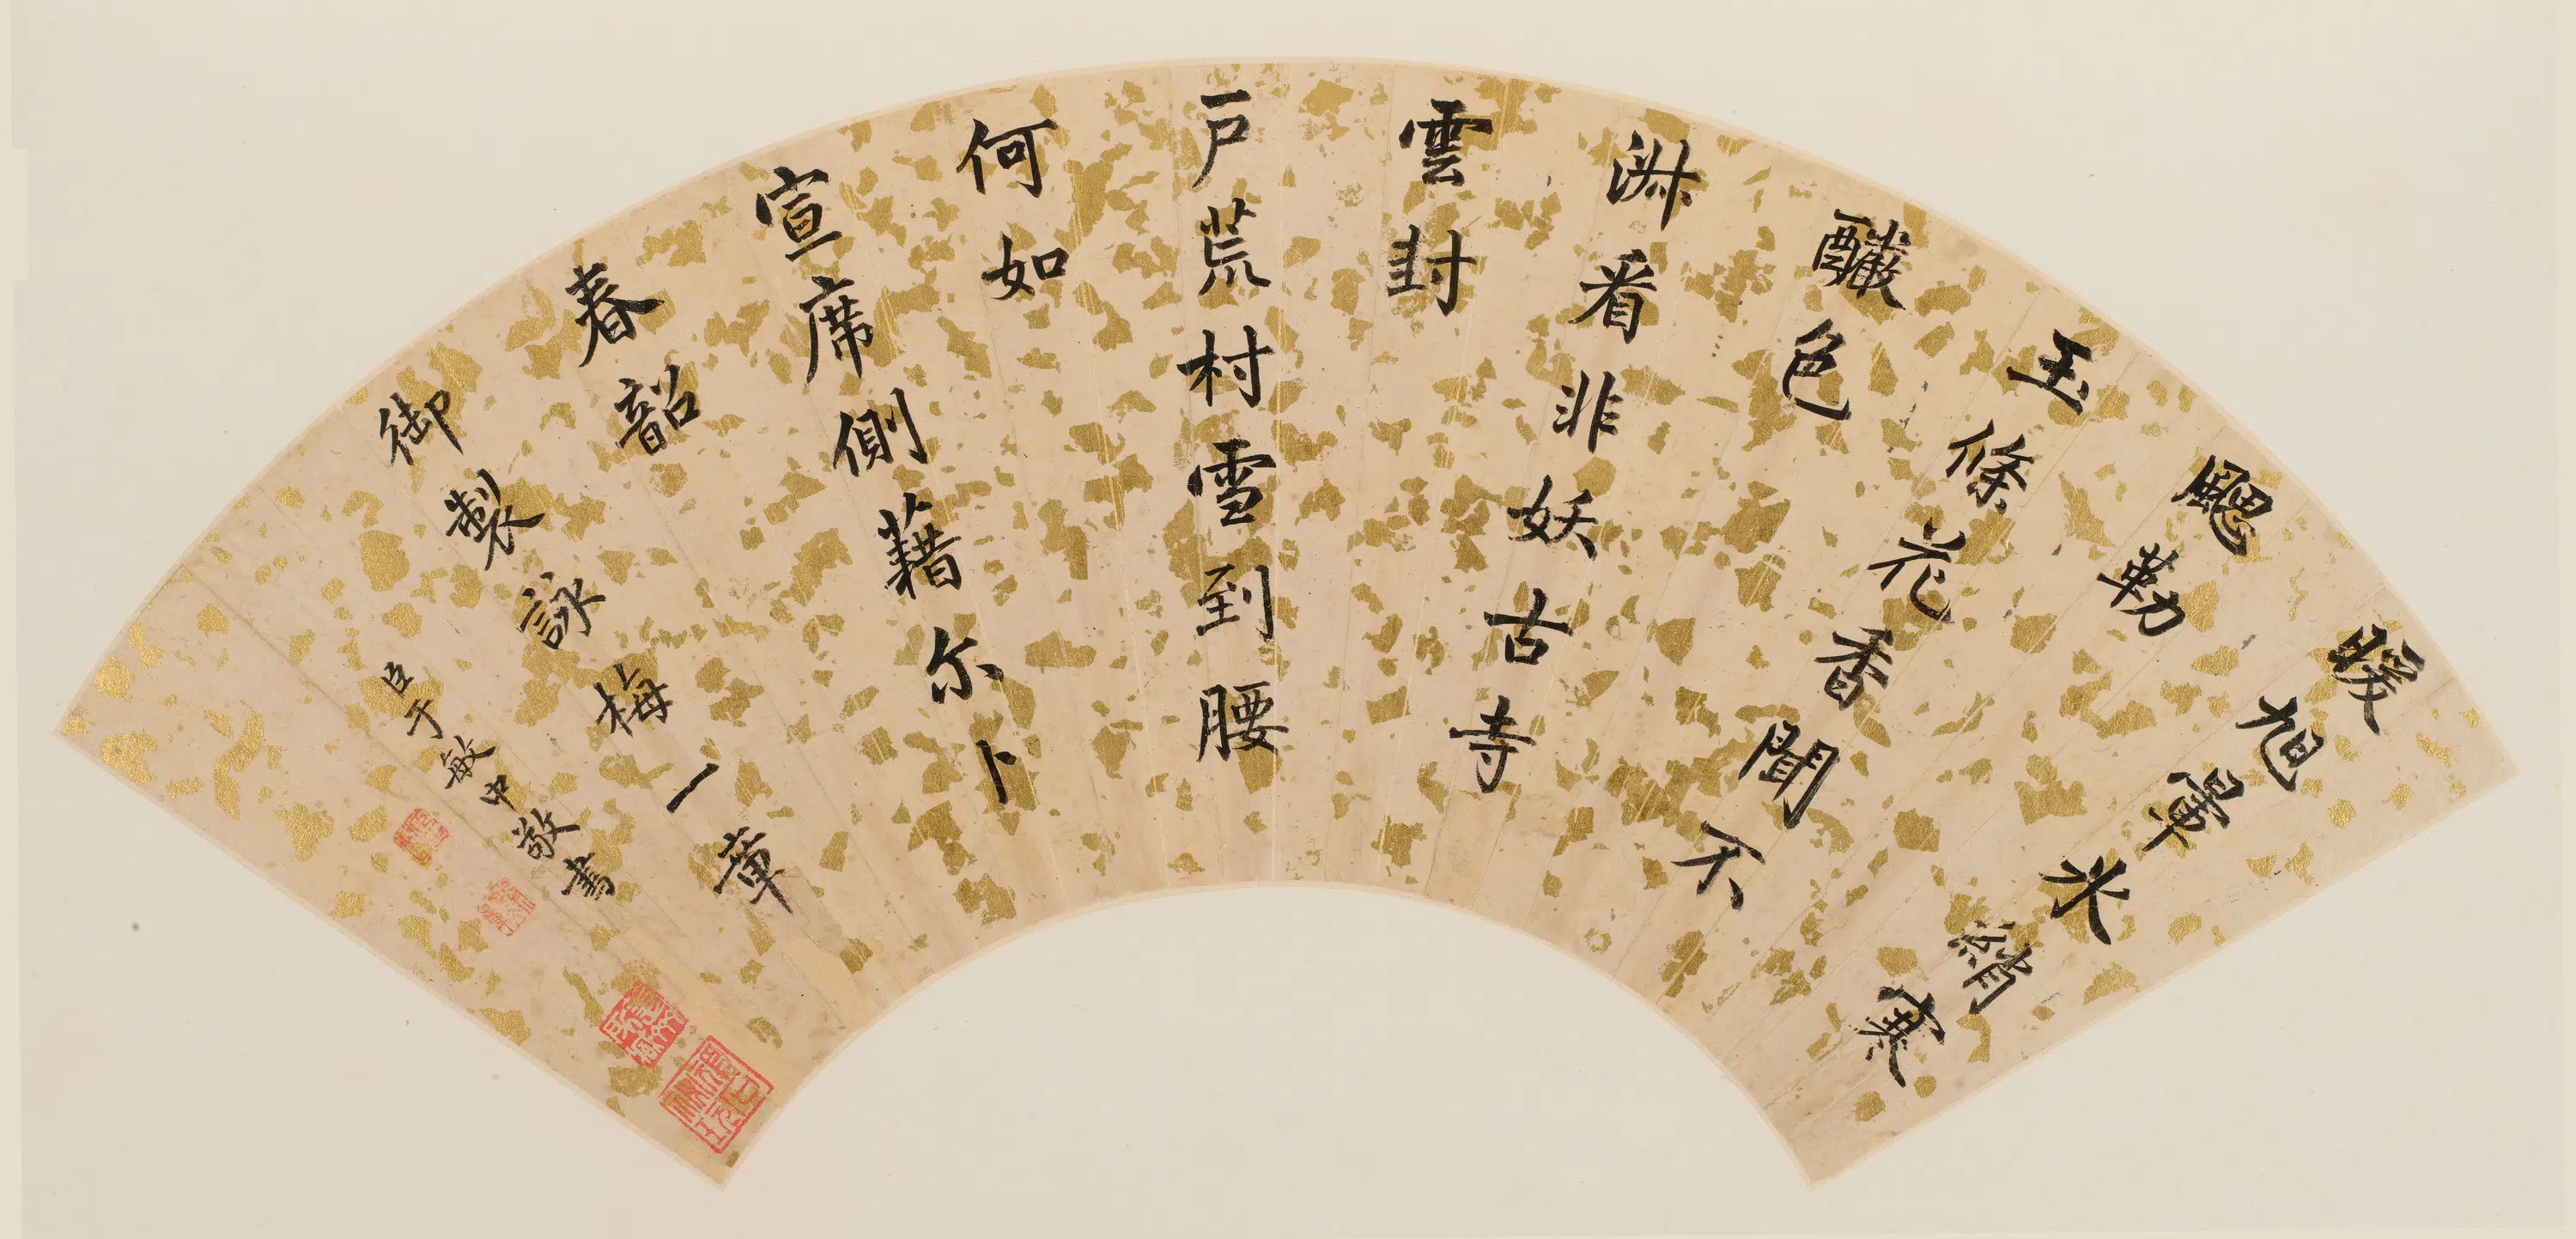 暖旭暈氷綃寒
颸勒
玉條花香聞不
釅色
淋看非妖古寺
雲封
戶荒村雪到腰
何如
宣席側藉尔卜
春韶
御製詠梅一章
臣于敏中敬書